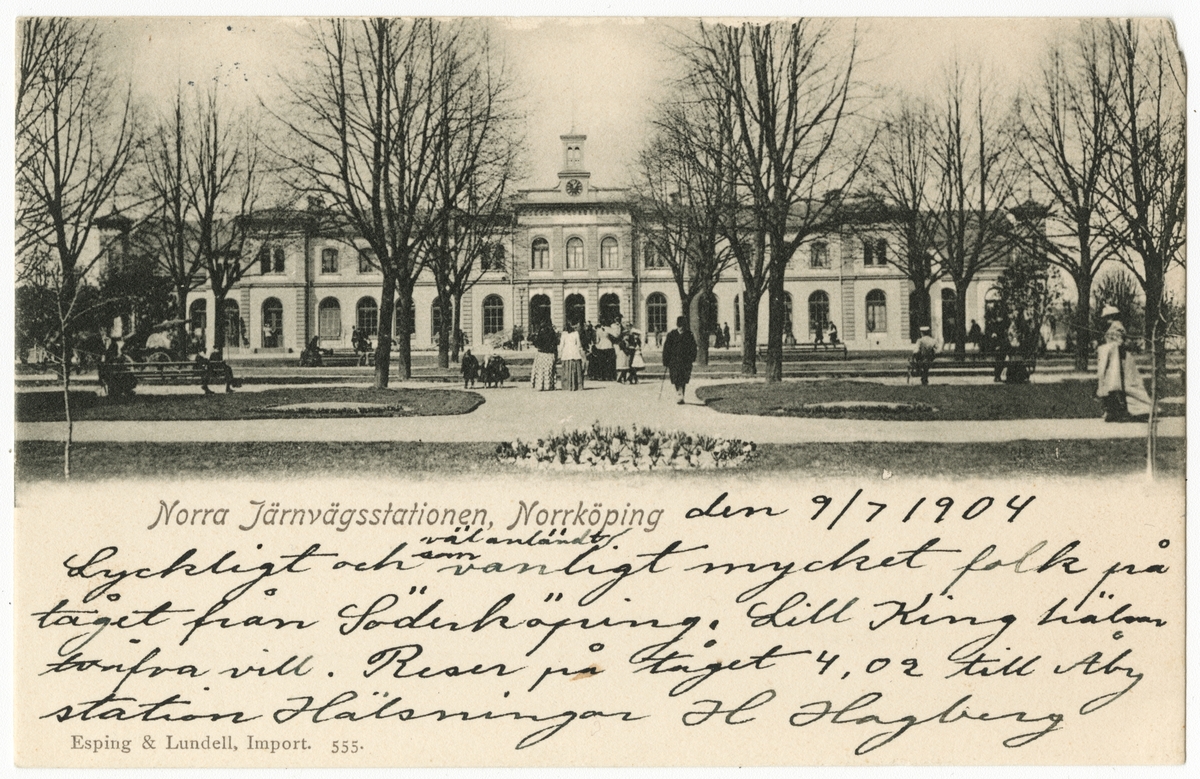 Norra Järnvägsstationen, Norrköping den 9/7 1904
väl anländt
Lyckligt och som vanligt mycket folk på
tåget från Söderköping. Lill King hälsar
vill. Reser på tåget 4,02 till Åby
station Hälsningar H Hagberg
Esping & Lundell, Import. 555.